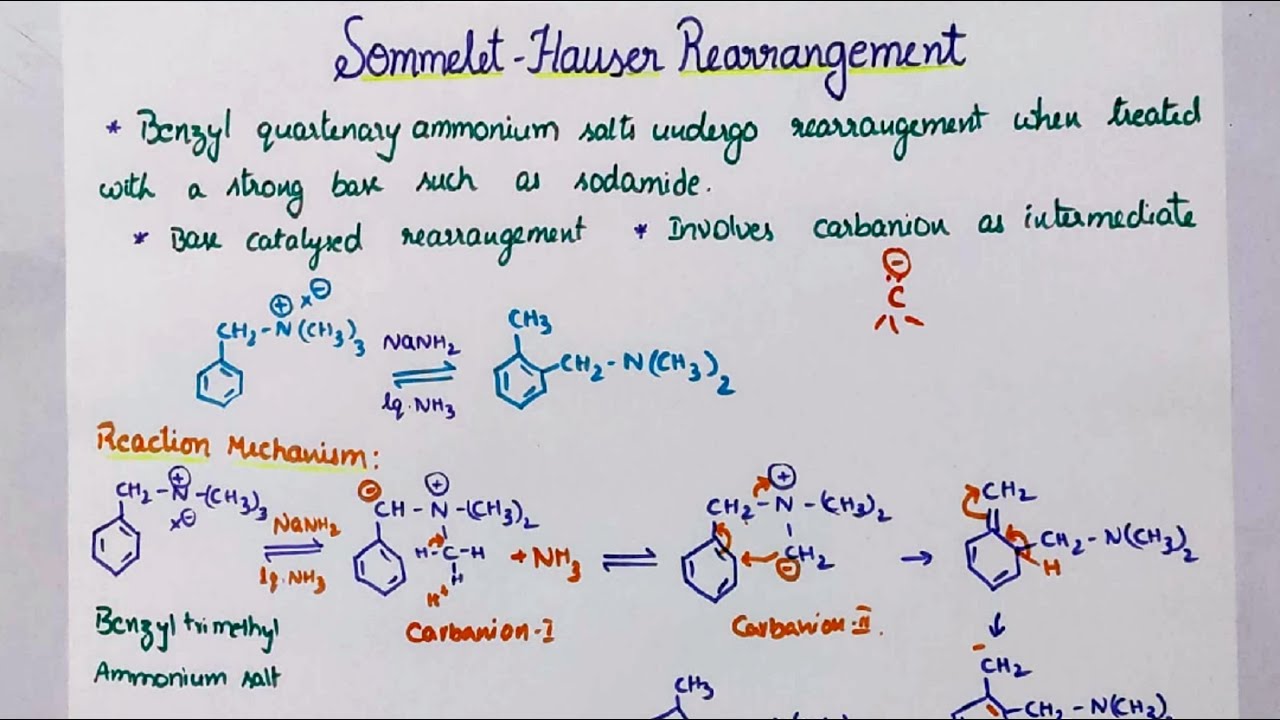 Sommelet-Hauser Rearrangement
* Benzyl quartenary ammonium salts undergo rearrangement when treated
with a strong base such as sodamide.
* Base catalysed rearrangement * Involves carbanion as intermediate
⊖
C
⊕ x⊖
CH2-N(CH3)3
NaNH2
lq.NH3
CH3
CH2-N(CH3)2
Reaction Mechanism:
⊕
CH2-N-(CH3)3
x⊖
NaNH2
lq.NH3
⊖ ⊕
CH-N-(CH3)2
H-C-H
H
H+
+NH3
⊕
CH2-N-(CH3)2
CH2
⊖
CH2
CH2-N(CH3)2
H
Benzyl trimethyl
Ammonium salt
Carbanion-I
Carbanion-II.
-
CH2
CH2-N(CH3)2
CH3